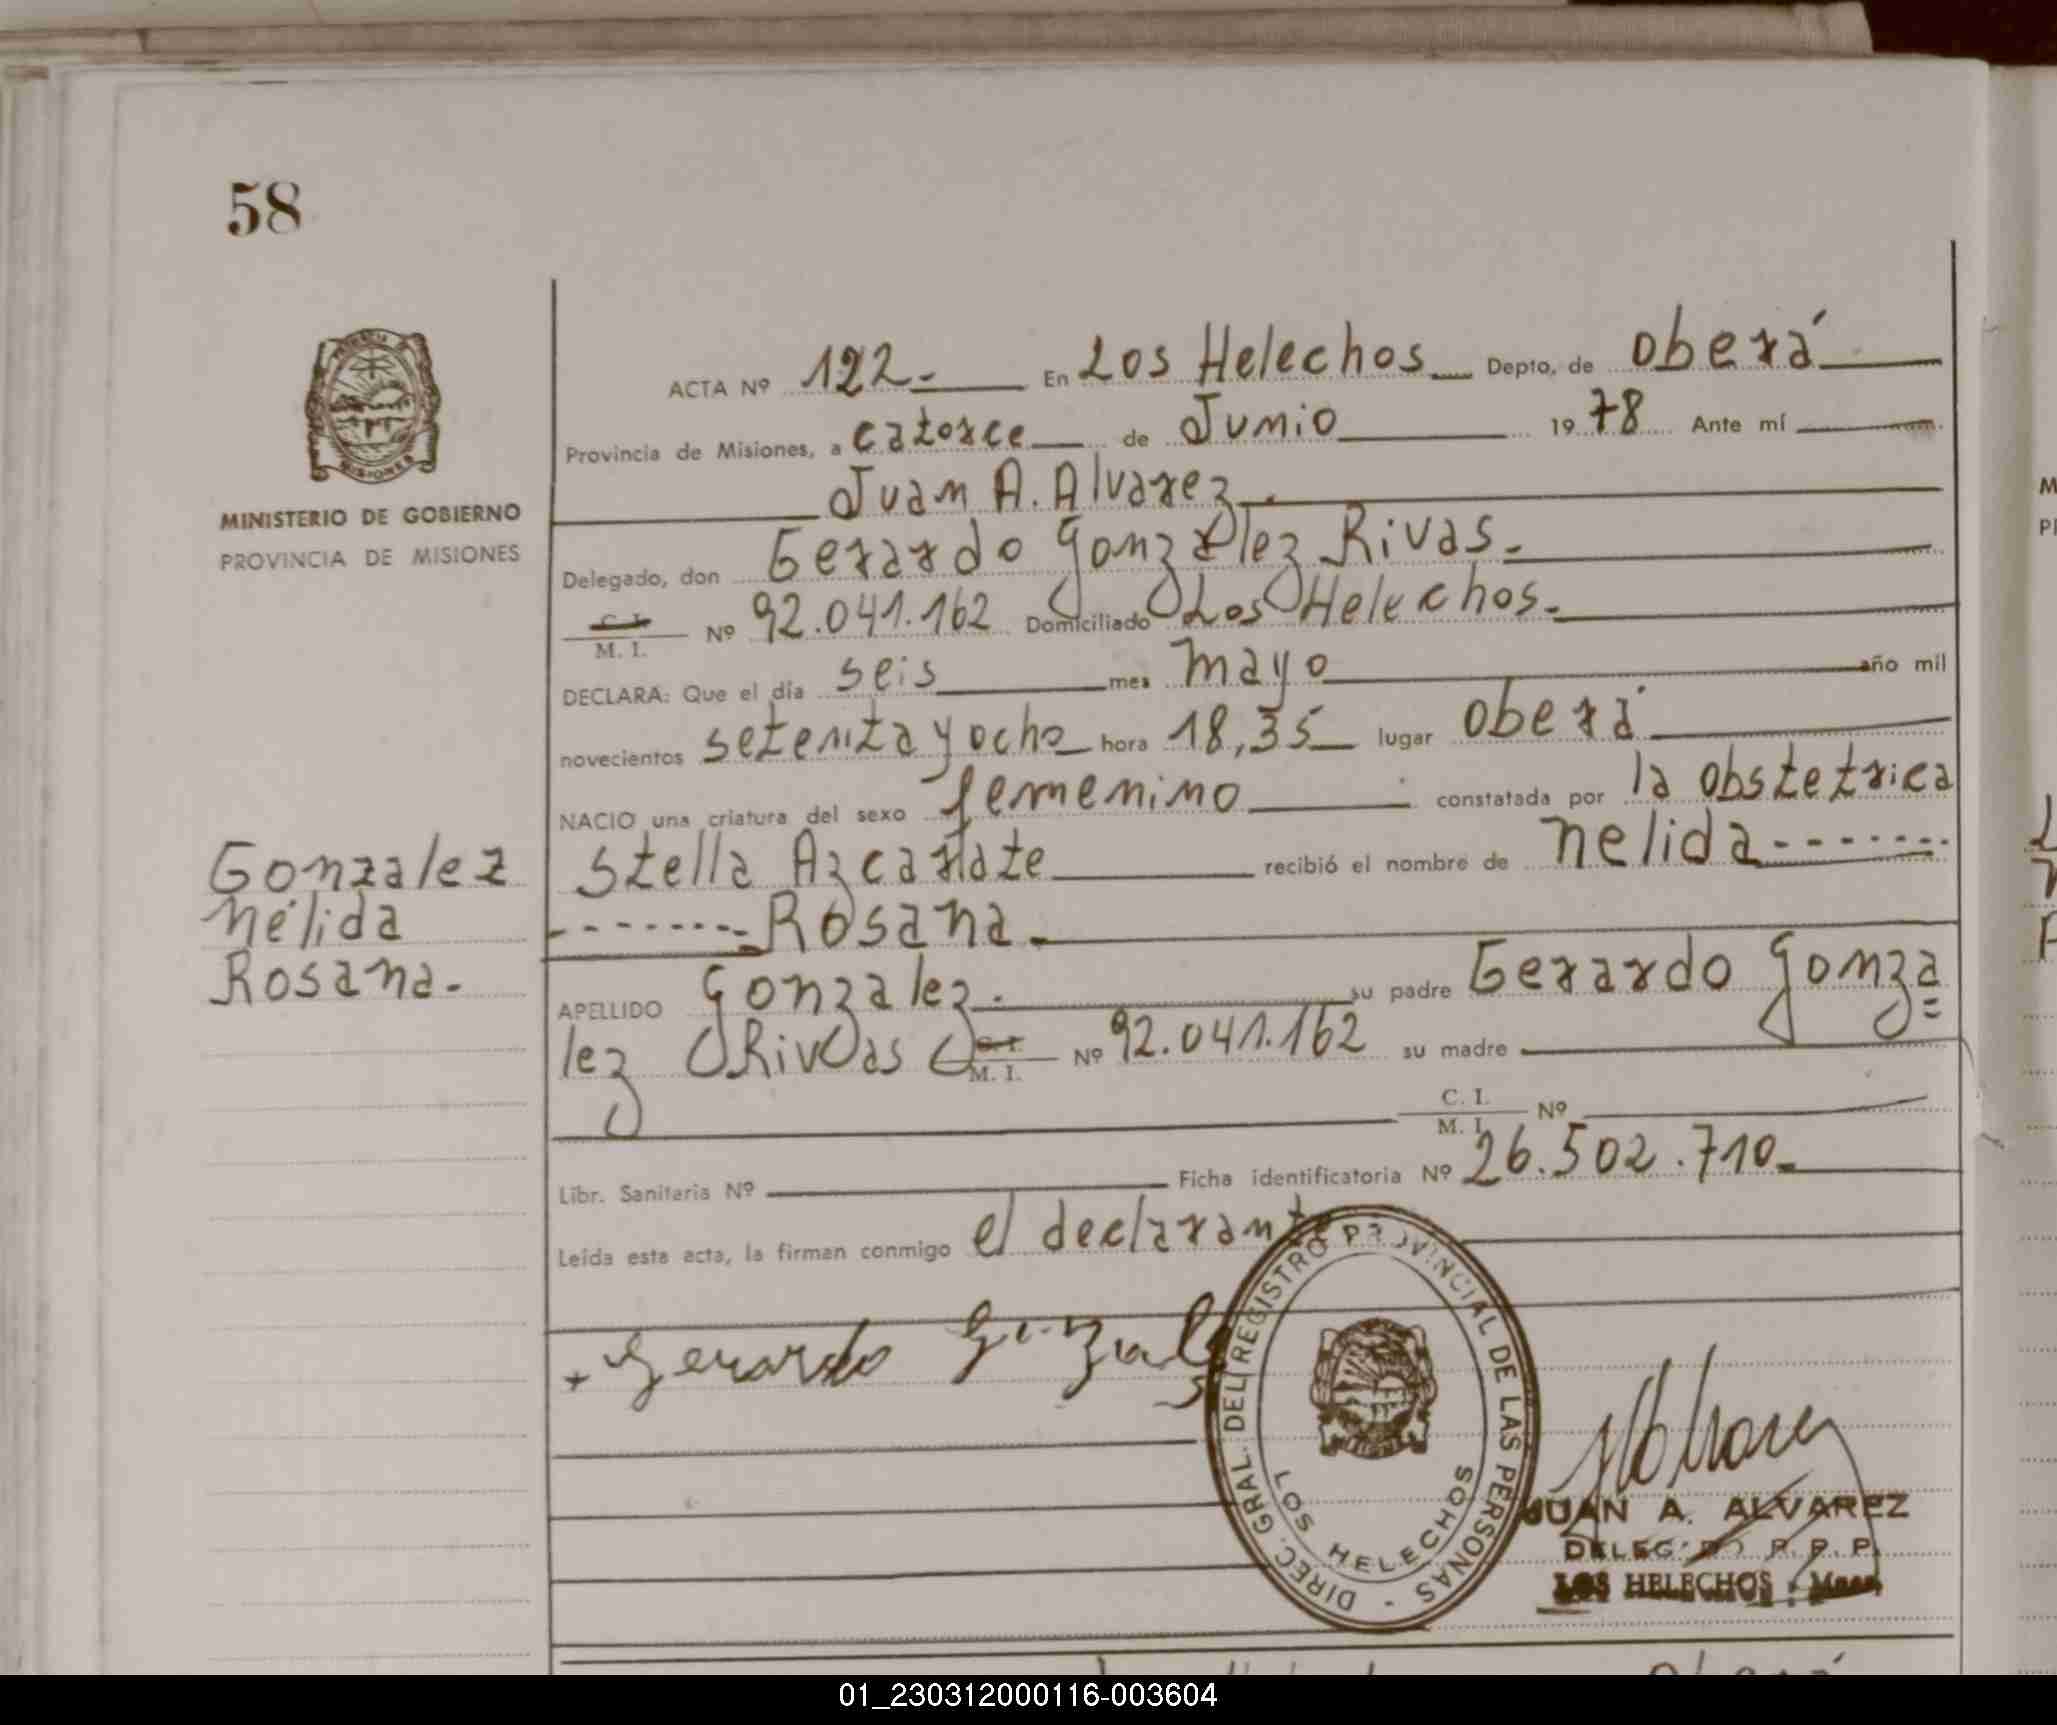 58
MINISTERIO DE GOBIERNO
PROVINCIA DE MISIONES
Gonzalez
Nélida
Rosana.
ACTA Nº 122. En Los Helechos Depto. de Oberá
Provincia de Misiones, a catorce de Junio 1978 Ante mí
Juan A. Alvarez.
Delegado, don Gerardo Gonzalez Rivas.
C. I. M. I. Nº 92.041.162 Domiciliado Los Helechos.
DECLARA: Que el día seis mes mayo año mil
novecientos setenta y ocho hora 18,35 lugar Oberá
NACIO una criatura del sexo femenino constatada por la obstetrica
Stella Azcarate recibió el nombre de Nelida
Rosana.
APELLIDO Gonzalez. su padre Gerardo Gonza=
lez Rivas C. I. M. I. Nº 92.041.162 su madre
C. I. M. I. Nº
Libr. Sanitaria Nº Ficha identificatoria Nº 26.502.710.
Leída esta acta, la firman conmigo el declarante
+ Gerardo Gonzalez
DIREC. GRAL. DEL REGISTRO PROVINCIAL DE LAS PERSONAS -
LOS HELECHOS
JUAN A. ALVAREZ
DELEGADO R. P. P.
LOS HELECHOS - Mnes.
01_230312000116-003604